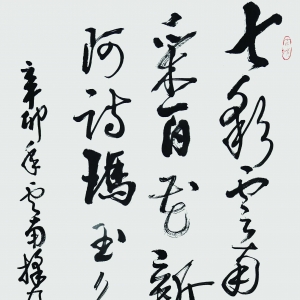 七彩云南
采百花新
阿诗玛玉
辛卯年云南